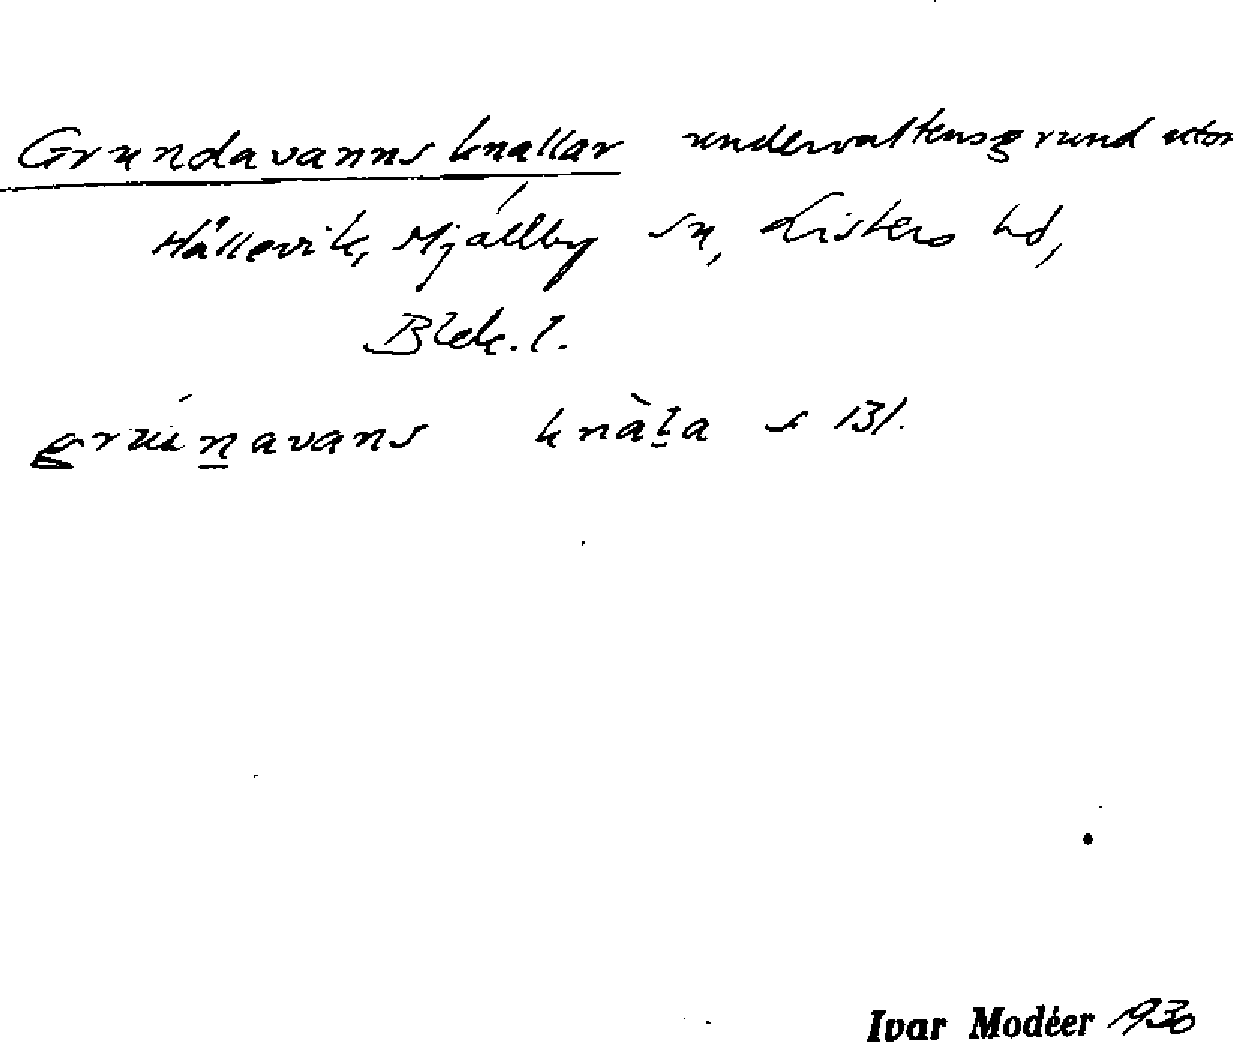 Grundavanns knallar undervattensgrund utom
Hällevik, Mjällby sn, Listers hd,
Blek. l.
grúnavans knàla s 131.
Ivar Modéer 1930